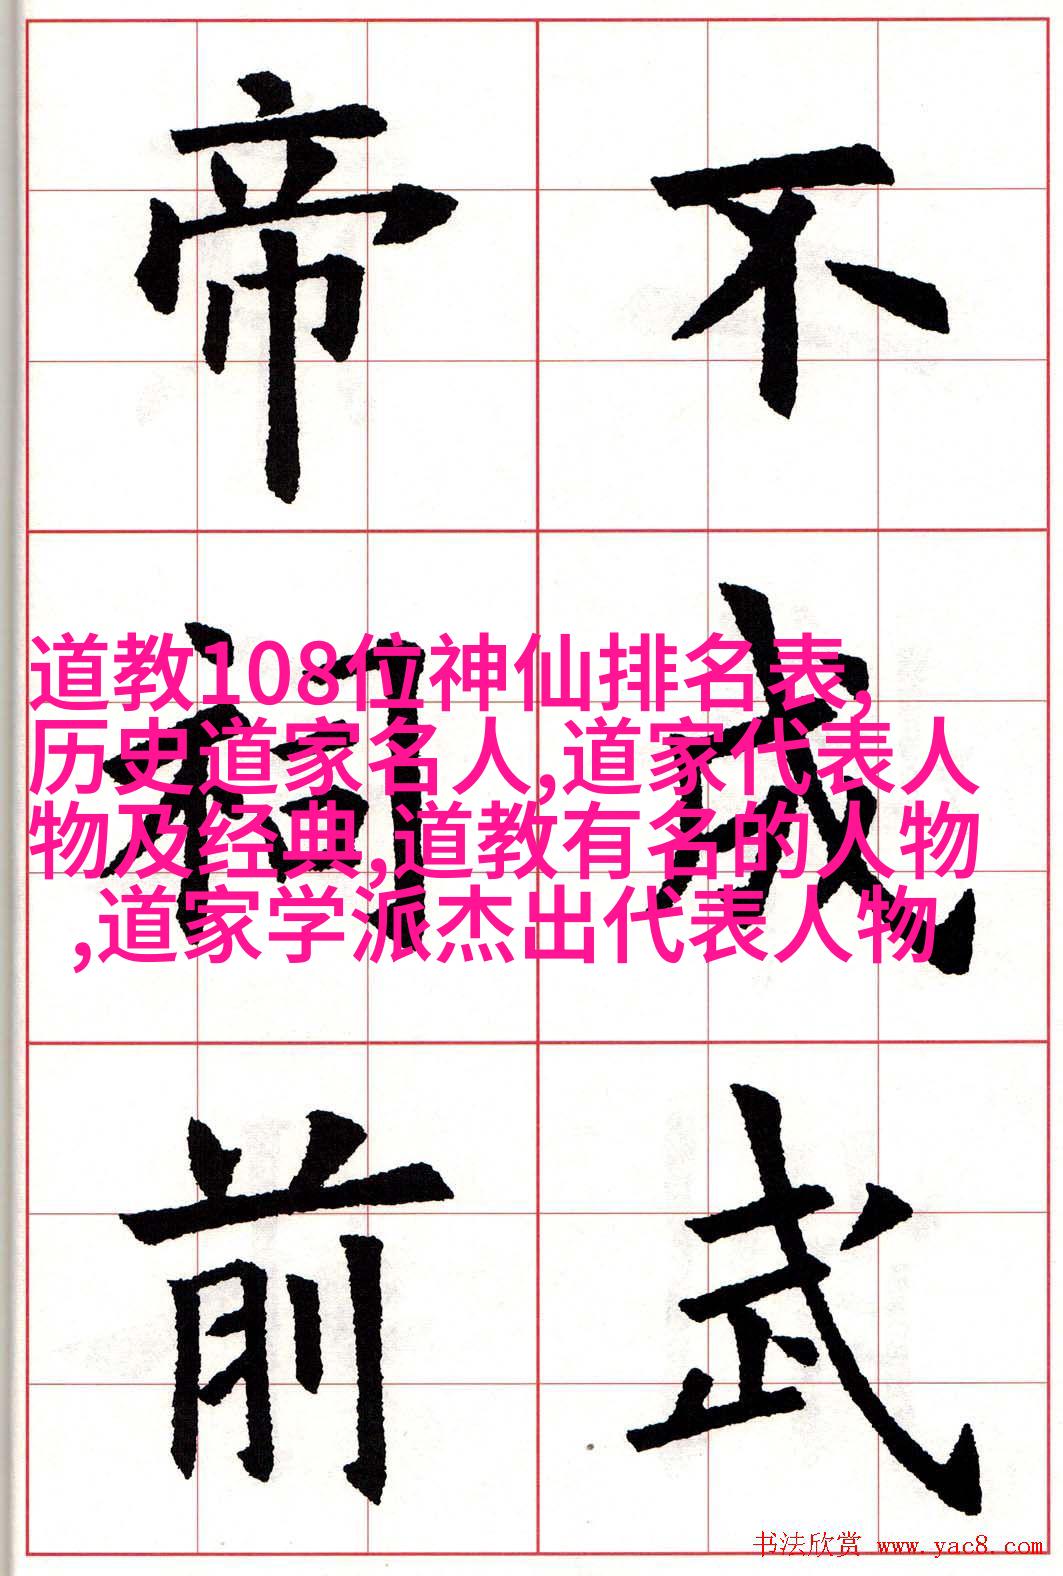 帝 不
祠 成
前 武
道教108位神仙排名表,
历史道家名人,道家代表人
物及经典,道教有名的人物
,道家学派杰出代表人物
书法欣赏 www.yac8.com